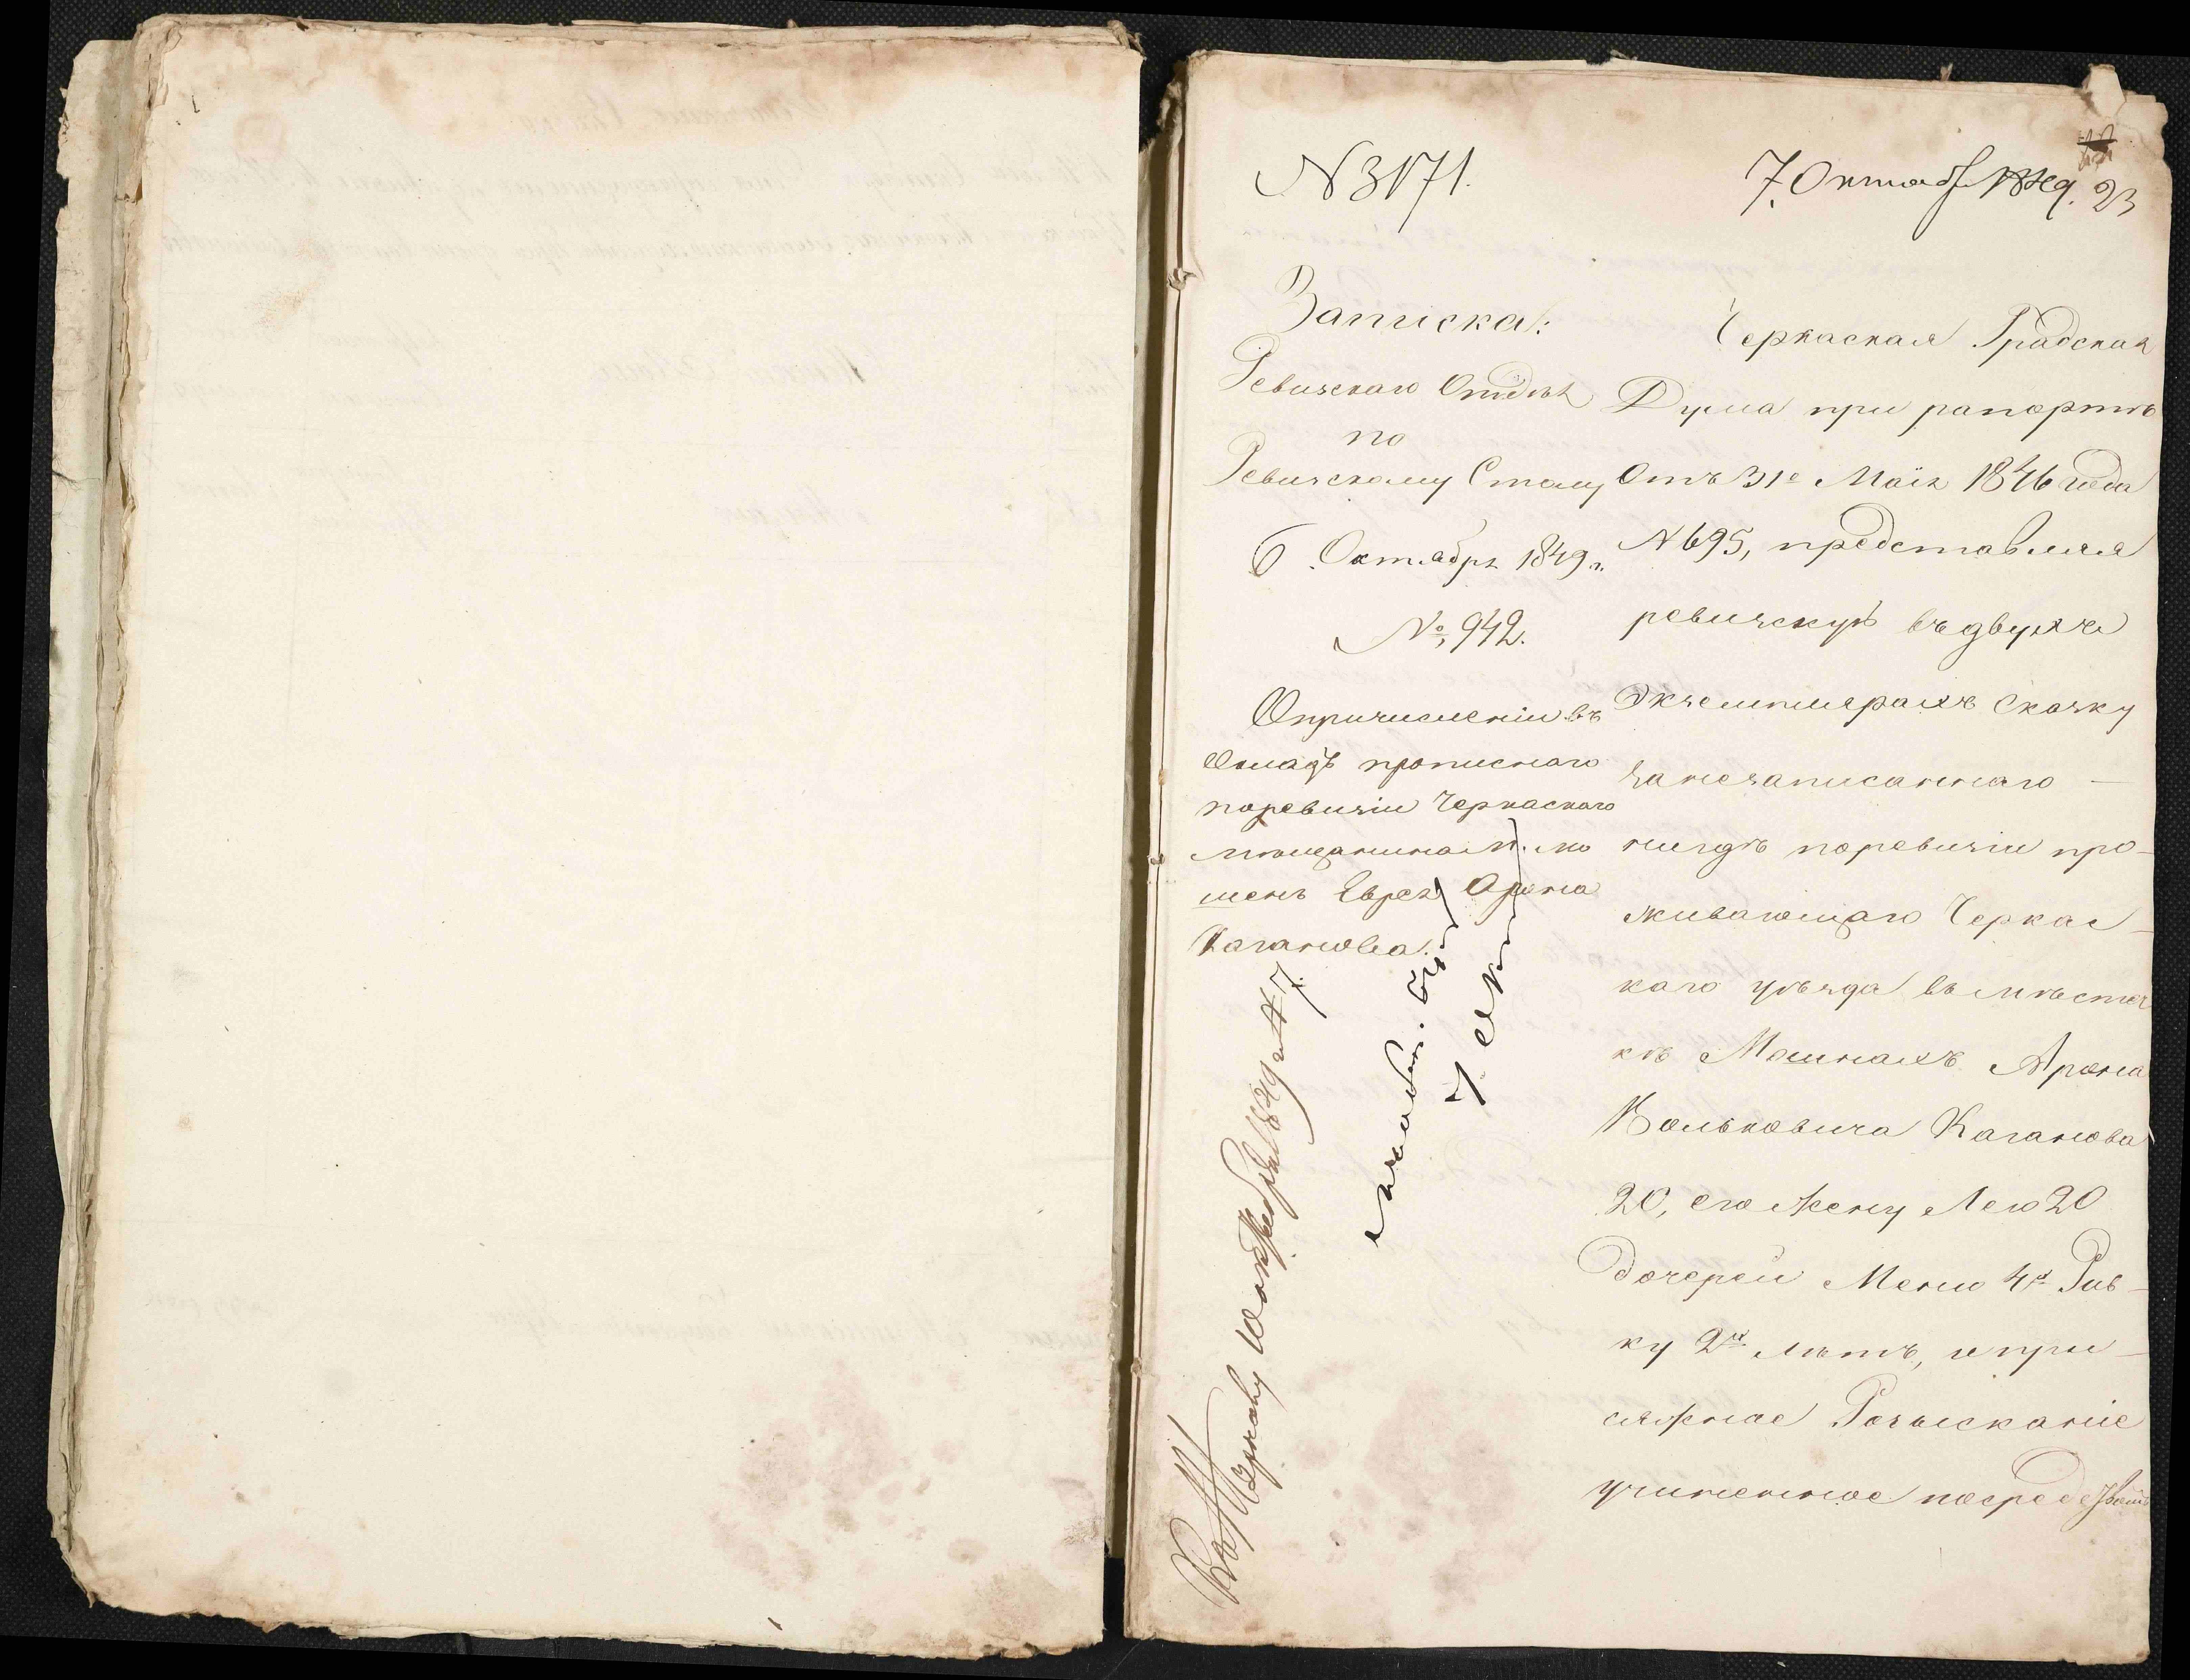 N 3171.
7. Октяб. 1849. 23
Записка:
Ревизскаго Отдѣл.
по
Ревизскому Столу
6 Октября 1849 г.
№, 942.
О причисленіи въ
Окладъ прописнаго
по ревизіи Черкаскаго
мѣщанина м. Мо
шенъ Еврея Арона
Каганова.
Черкаская Градская
Дума при рапортѣ
Отъ 31го Маія 1846 года
N 695, представляя
ревизскую въ двухъ
Экземплярахъ Сказку
за незаписаннаго —
нигдѣ по ревизіи про-
живающаго Черкас-
каго уѣзда въ мѣстеч
кѣ Мошнахъ Арона
Вольковича Каганова
20, его жену Лею 20
дочерей Меню 4х Рив-
ку 2хъ лѣтъ, и при-
сяжное Розысканіе
учиненное посредствомъ